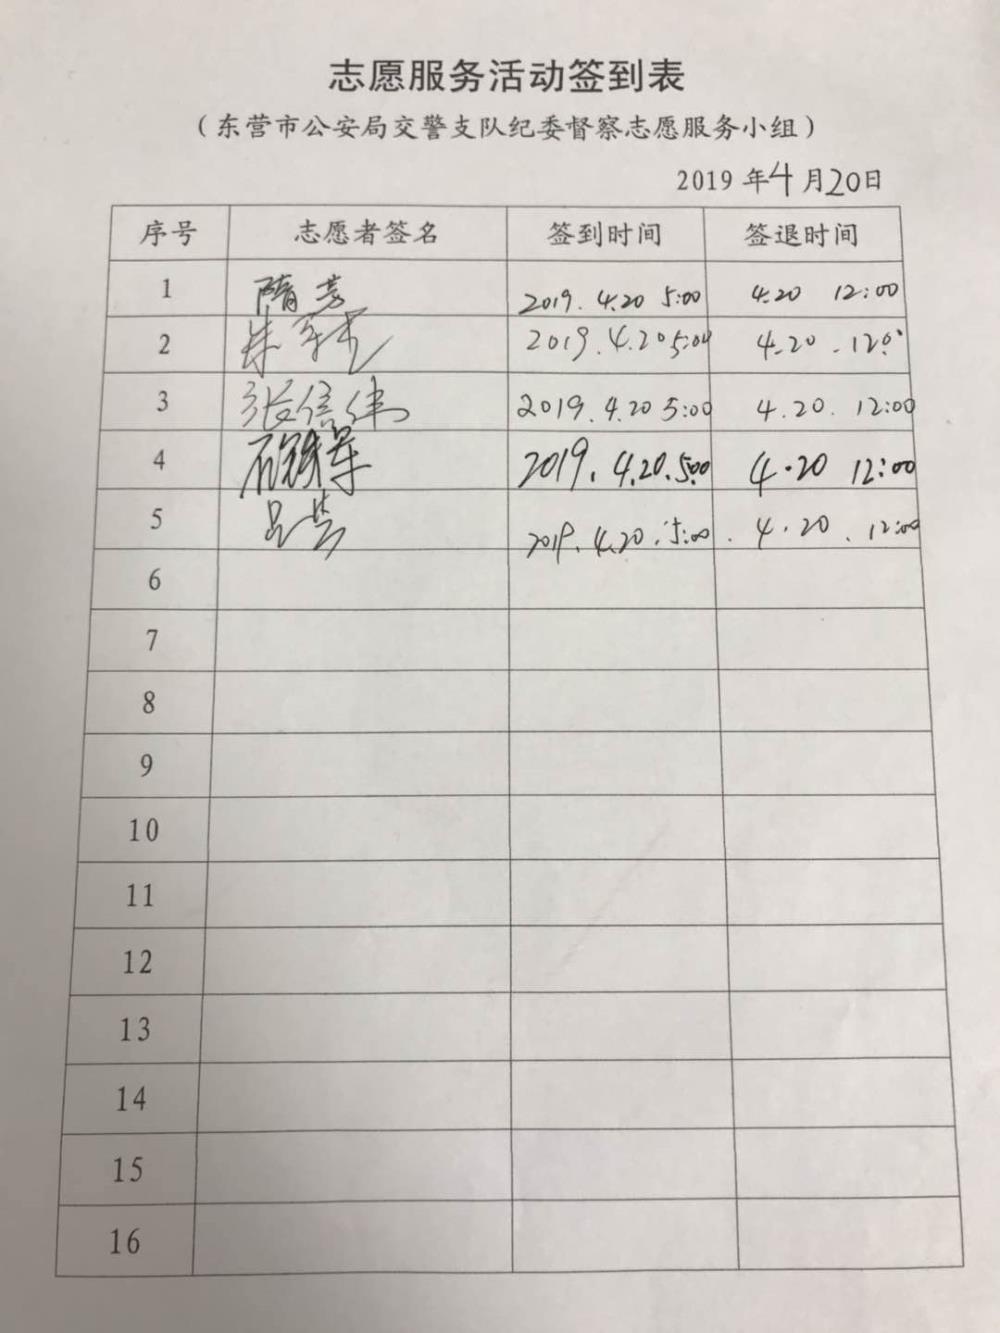 志愿服务活动签到表
（东营市公安局交警支队纪委督察志愿服务小组）
2019 年4月20日
序号 志愿者签名 签到时间 签退时间
1 隋芳 2019.4.20 5:00 4.20 12:00
2 朱 2019.4.20 5:00 4.20.12:00
3 张信伟 2019.4.20 5:00 4.20. 12:00
4 2019.4.20.5:00 4.20 12:00
5 吕芸 2019.4.20.5:00. 4.20.12:00
6
7
8
9
10
11
12
13
14
15
16